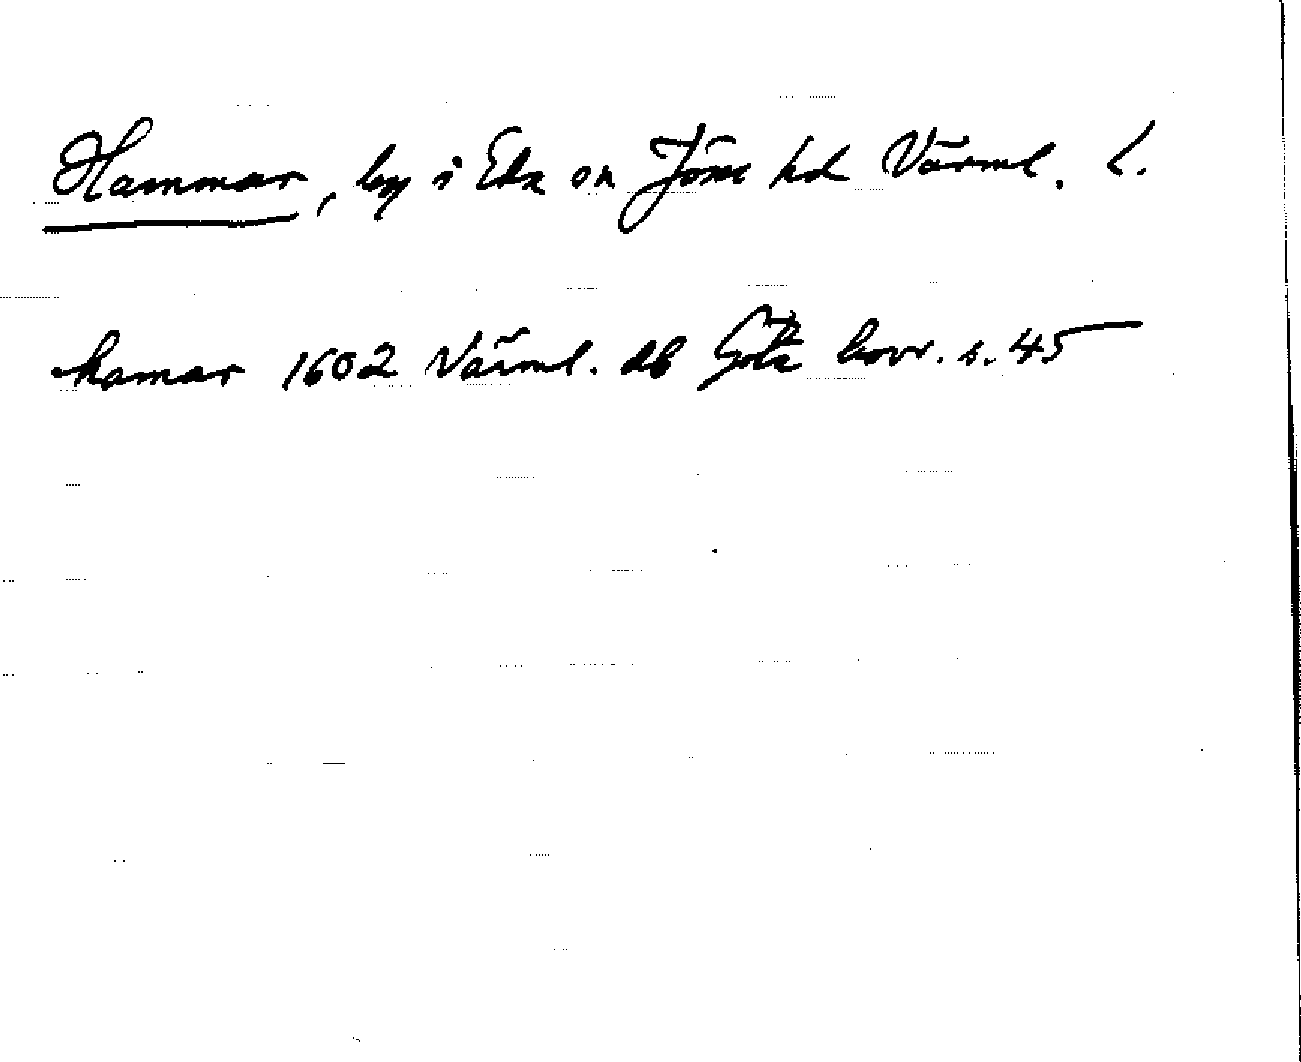 Hammar, by i Eda sn Jösse hd Värml. l.
hamar 1602 Värml. db Göta hovr. s. 45